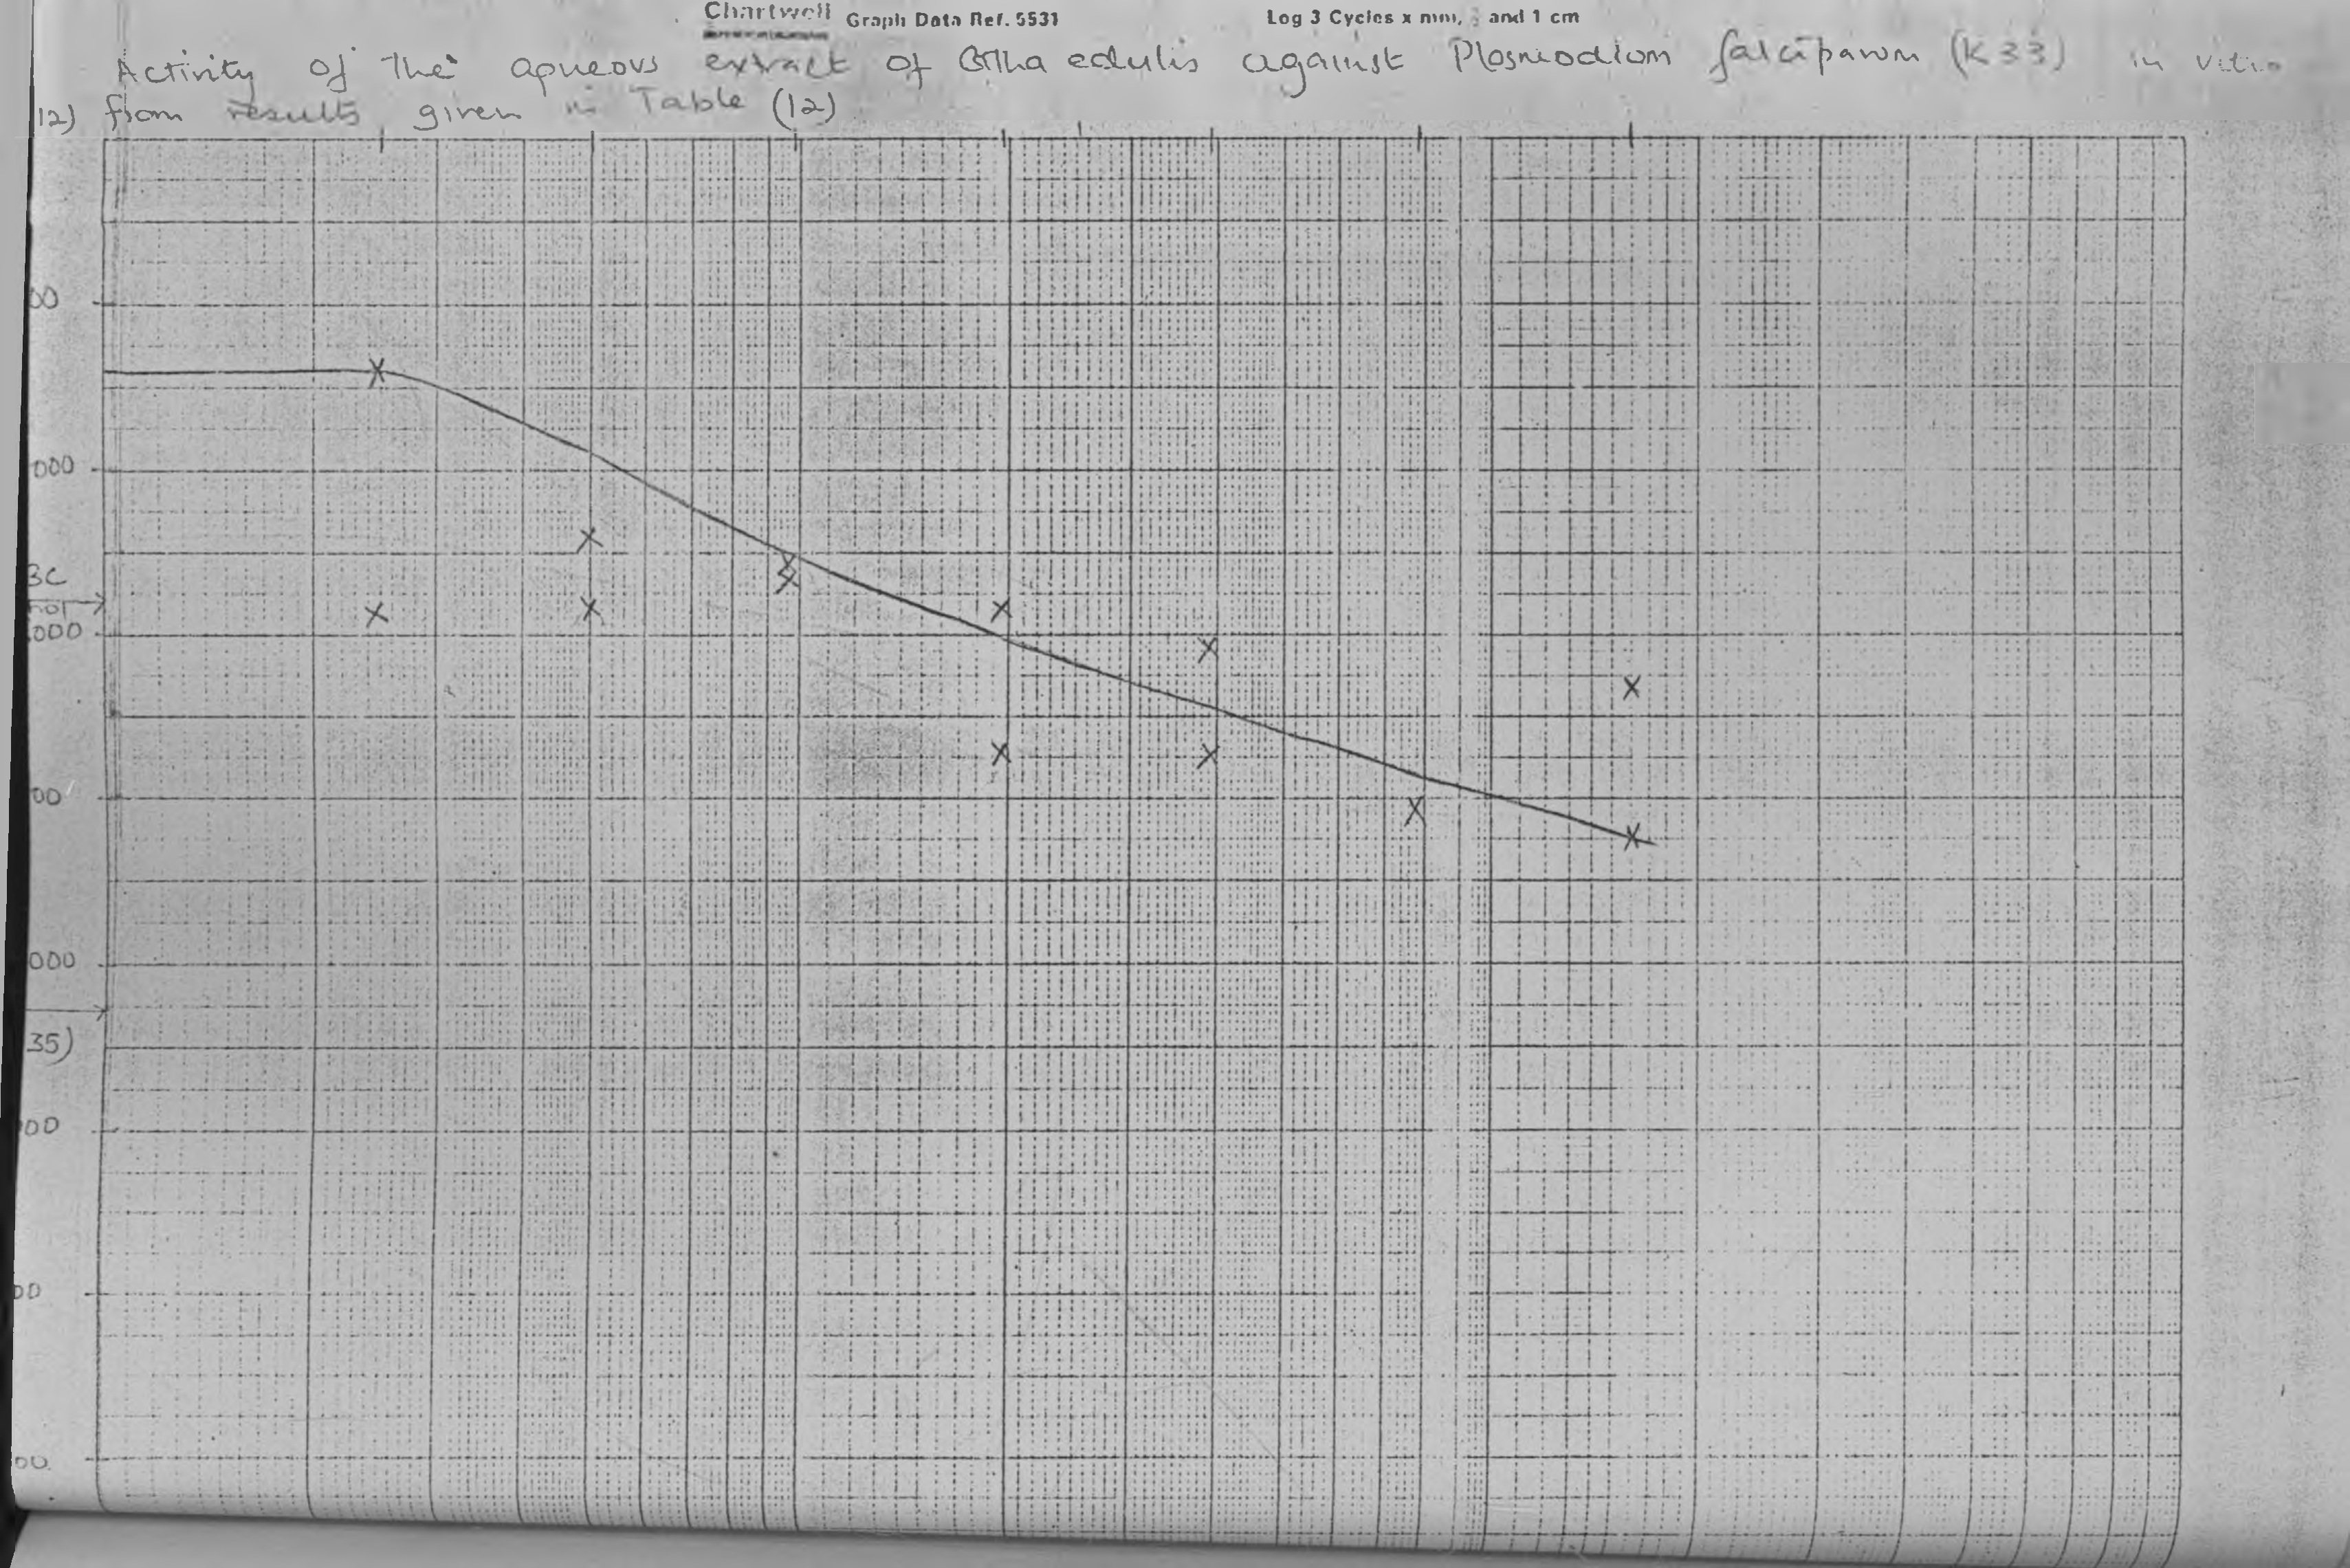 Chartwell Graph Data Ref. 5531 Log 3 Cycles x mm, and 1 cm
Activity of the aqueous extract of Catha edulis against Plasmodium falciparum (K33) in vitro
12) from results given in Table (12)
00
000
BC
000
00
000
35)
00
00
00